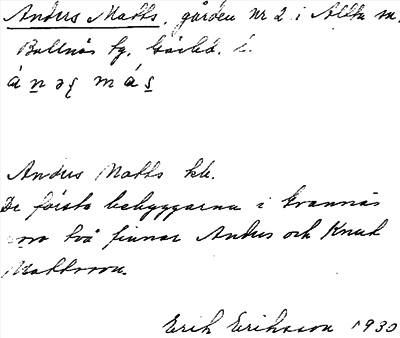 Anders Matts, gården nr 2 i Älbo m.
Bollnäs sn, Gävleb. l.
á n ə ʂ m á s
Anders Matts kb.
De första bebyggarna i Grannäs
voro två finnar Anders och Knut
Mattsson.
Erik Eriksson 1930